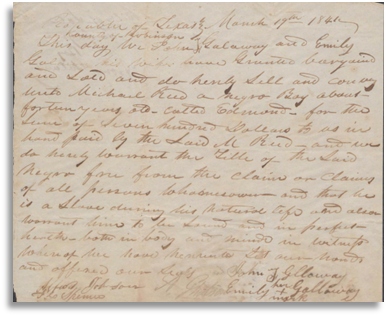 Republic of Texas March 19th 1841
County of Robertson
This day We John Gallaway and Emily
Gal his wife have Granted bargained
and Sold and do hereby Sell and convey
unto Michael Reed a negro Boy about
fortun years old called Edmond for the
Sum of Seven hundred Dollars to us in
hand paid by the Said M Reed and we
do hereby warrant the Title of the Said
Negro free from the Claim or Claims
of all persons whomsoever and that he
is a Slave during his natural life and also
warrant him to be Sound and in perfect
health both in body and mind in witness
whereof we have hereunto Set our hands
and affixed our Seals John Galloway
Jobson Emily her Galloway
mark